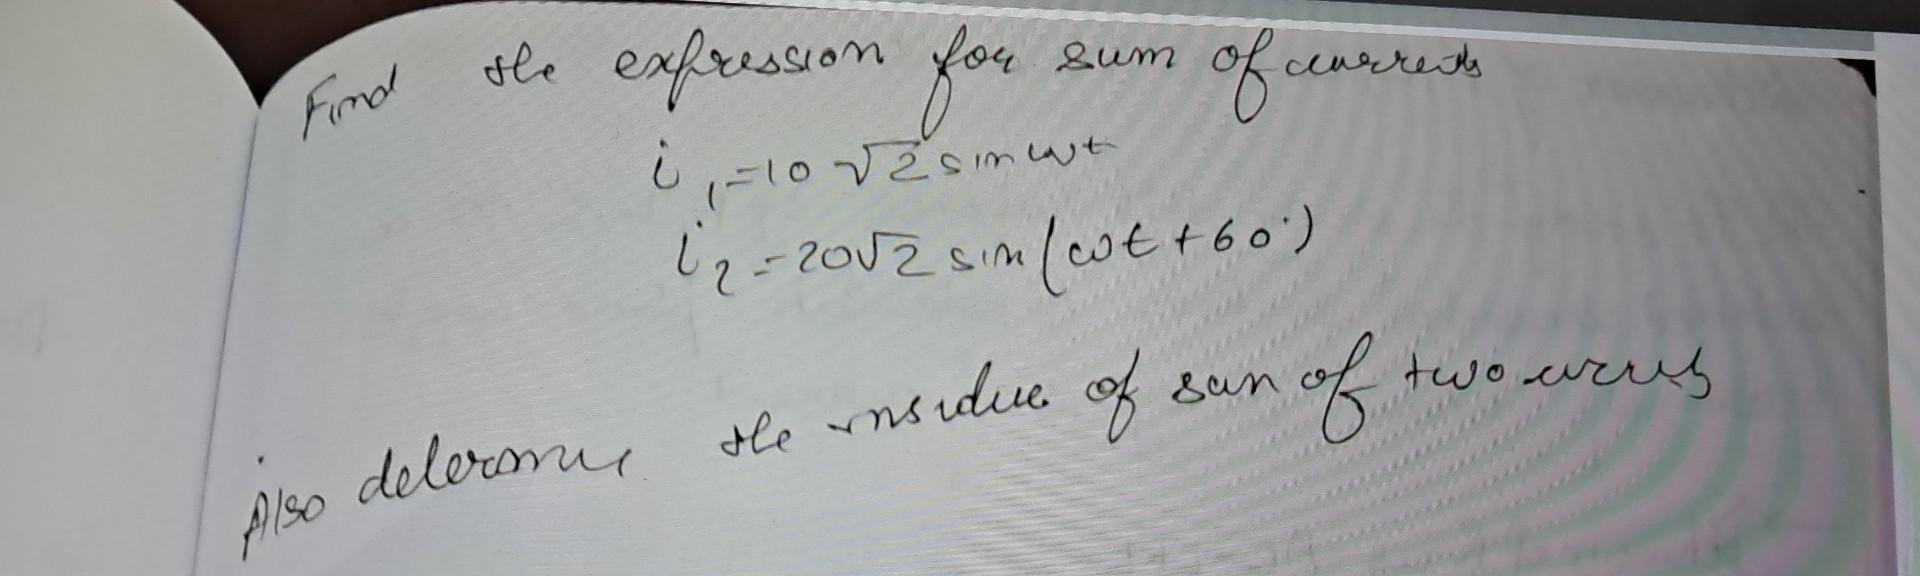 Find the expression for sum of currents
i₁=10√2 sin ωt
i₂=20√2 sin(ωt+60°)
Also determine the rms value of sum of two